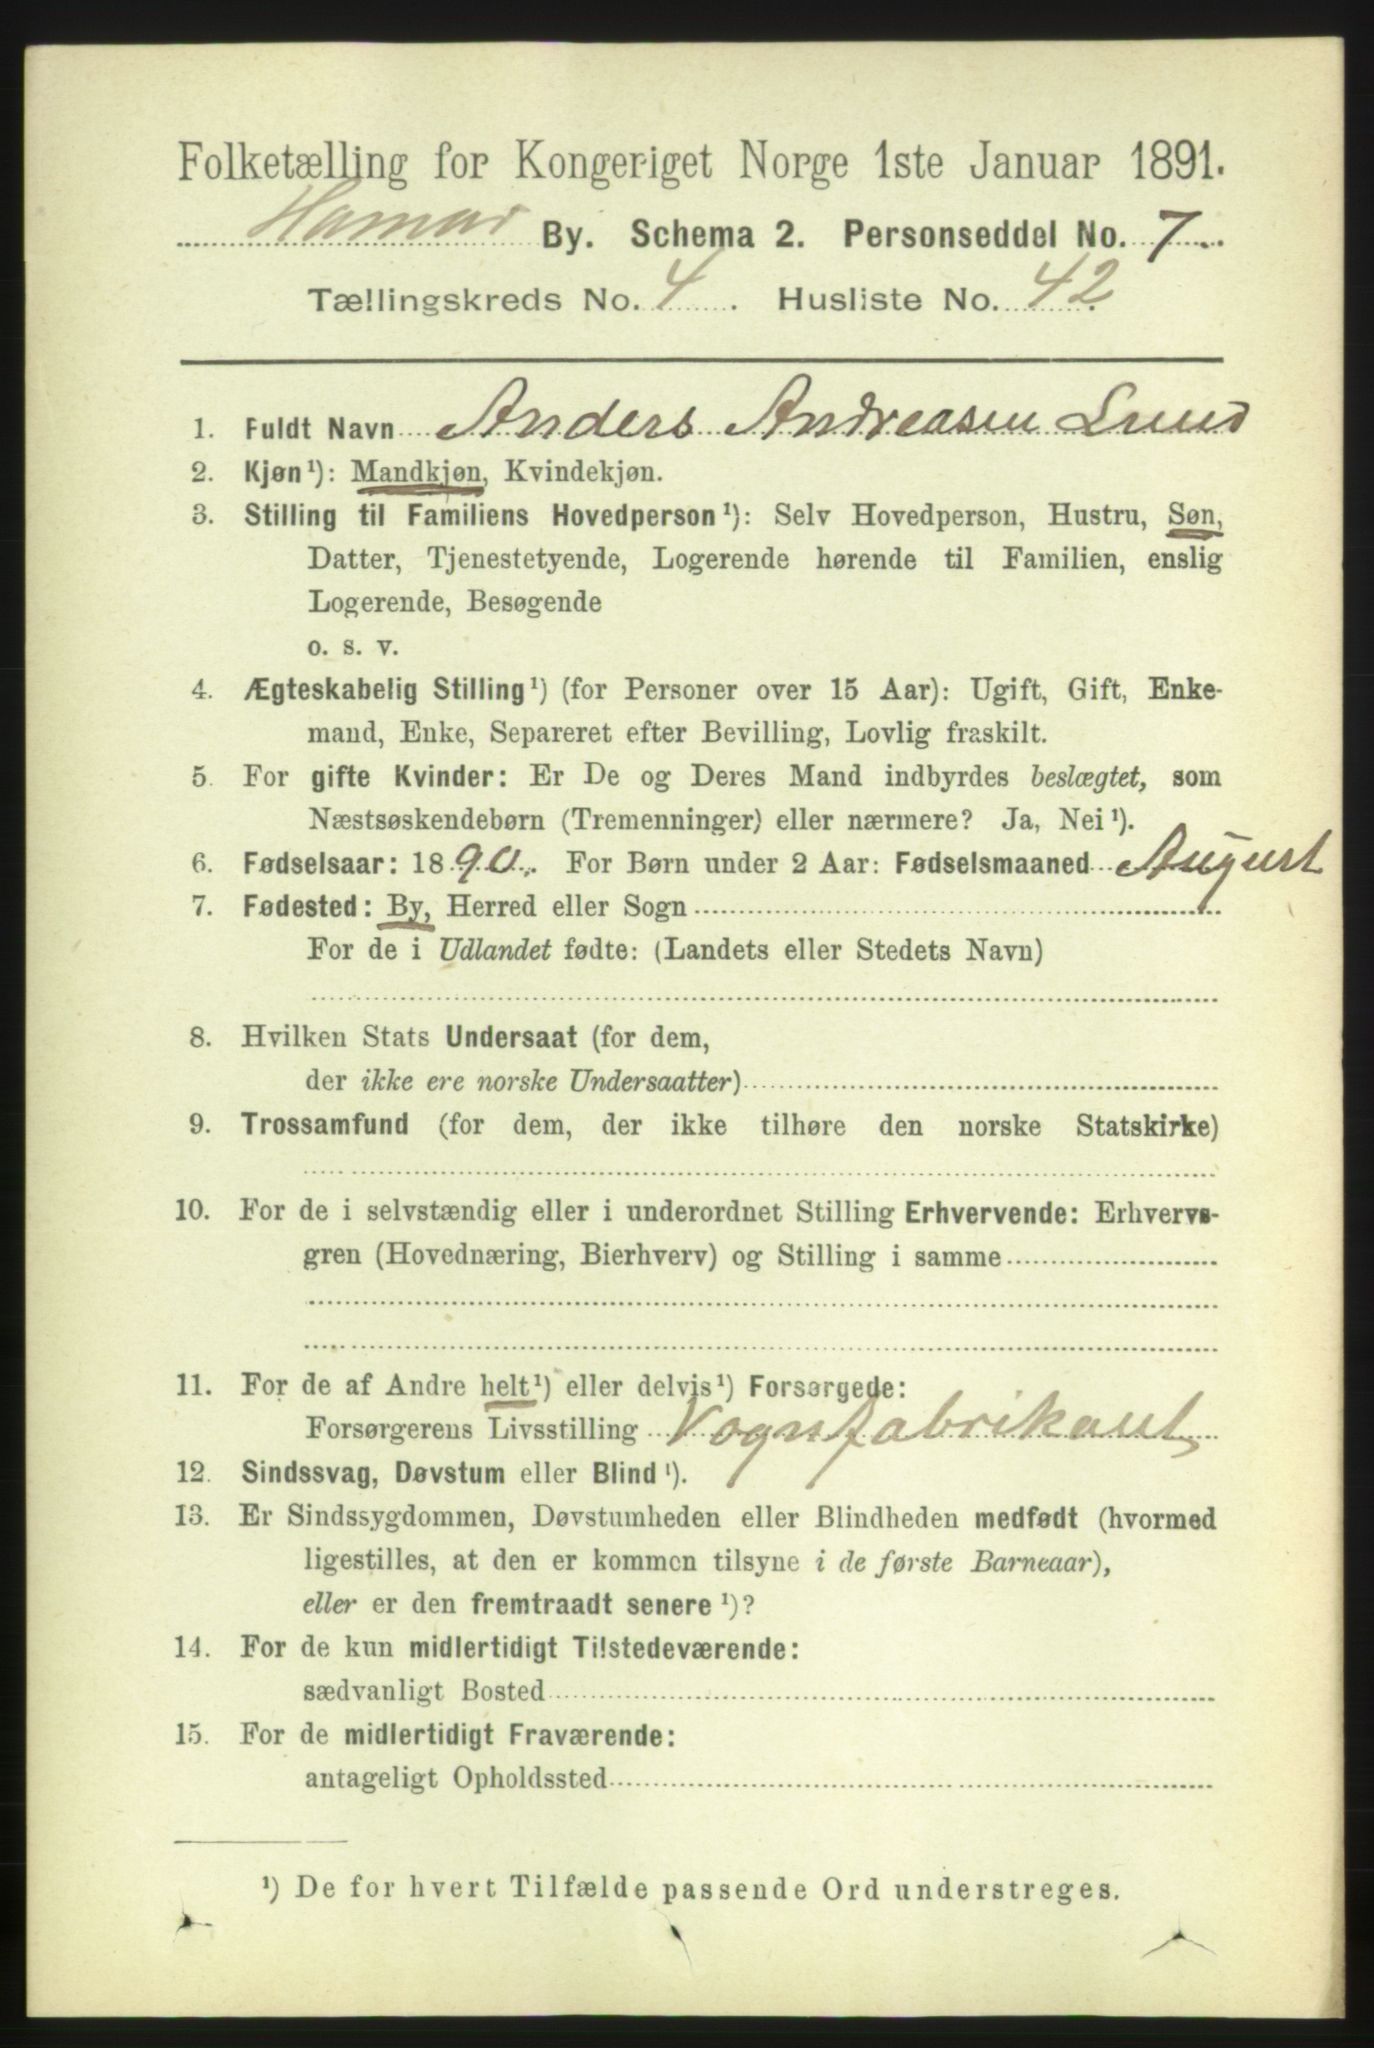 Folketælling for Kongeriget Norge 1ste Januar 1891.
Hamar By. Schema 2. Personseddel No. 7.
Tællingskreds No. 4. Husliste No. 42
1. Fuldt Navn Anders Andreasen Lund
2. Kjøn¹): Mandkjøn, Kvindekjøn.
3. Stilling til Familiens Hovedperson¹): Selv Hovedperson, Hustru, Søn,
Datter, Tjenestetyende, Logerende hørende til Familien, enslig
Logerende, Besøgende
o. s. v.
4. Ægteskabelig Stilling¹) (for Personer over 15 Aar): Ugift, Gift, Enke-
mand, Enke, Separeret efter Bevilling, Lovlig fraskilt.
5. For gifte Kvinder: Er De og Deres Mand indbyrdes beslægtet, som
Næstsøskendebørn (Tremenninger) eller nærmere? Ja, Nei¹).
6. Fødselsaar: 1890. For Børn under 2 Aar: Fødselsmaaned August
7. Fødested: By, Herred eller Sogn
For de i Udlandet fødte: (Landets eller Stedets Navn)
8. Hvilken Stats Undersaat (for dem,
der ikke ere norske Undersaatter)
9. Trossamfund (for dem, der ikke tilhøre den norske Statskirke)
10. For de i selvstændig eller i underordnet Stilling Erhvervende: Erhvervs-
gren (Hovednæring, Bierhverv) og Stilling i samme
11. For de af Andre helt¹) eller delvis¹) Forsørgede:
Forsørgerens Livsstilling Vognfabrikant
12. Sindssvag, Døvstum eller Blind¹).
13. Er Sindssygdommen, Døvstumheden eller Blindheden medfødt (hvormed
ligestilles, at den er kommen tilsyne i de første Barneaar),
eller er den fremtraadt senere¹)?
14. For de kun midlertidigt Tilstedeværende:
sædvanligt Bosted
15. For de midlertidigt Fraværende:
antageligt Opholdssted
¹) De for hvert Tilfælde passende Ord understreges.